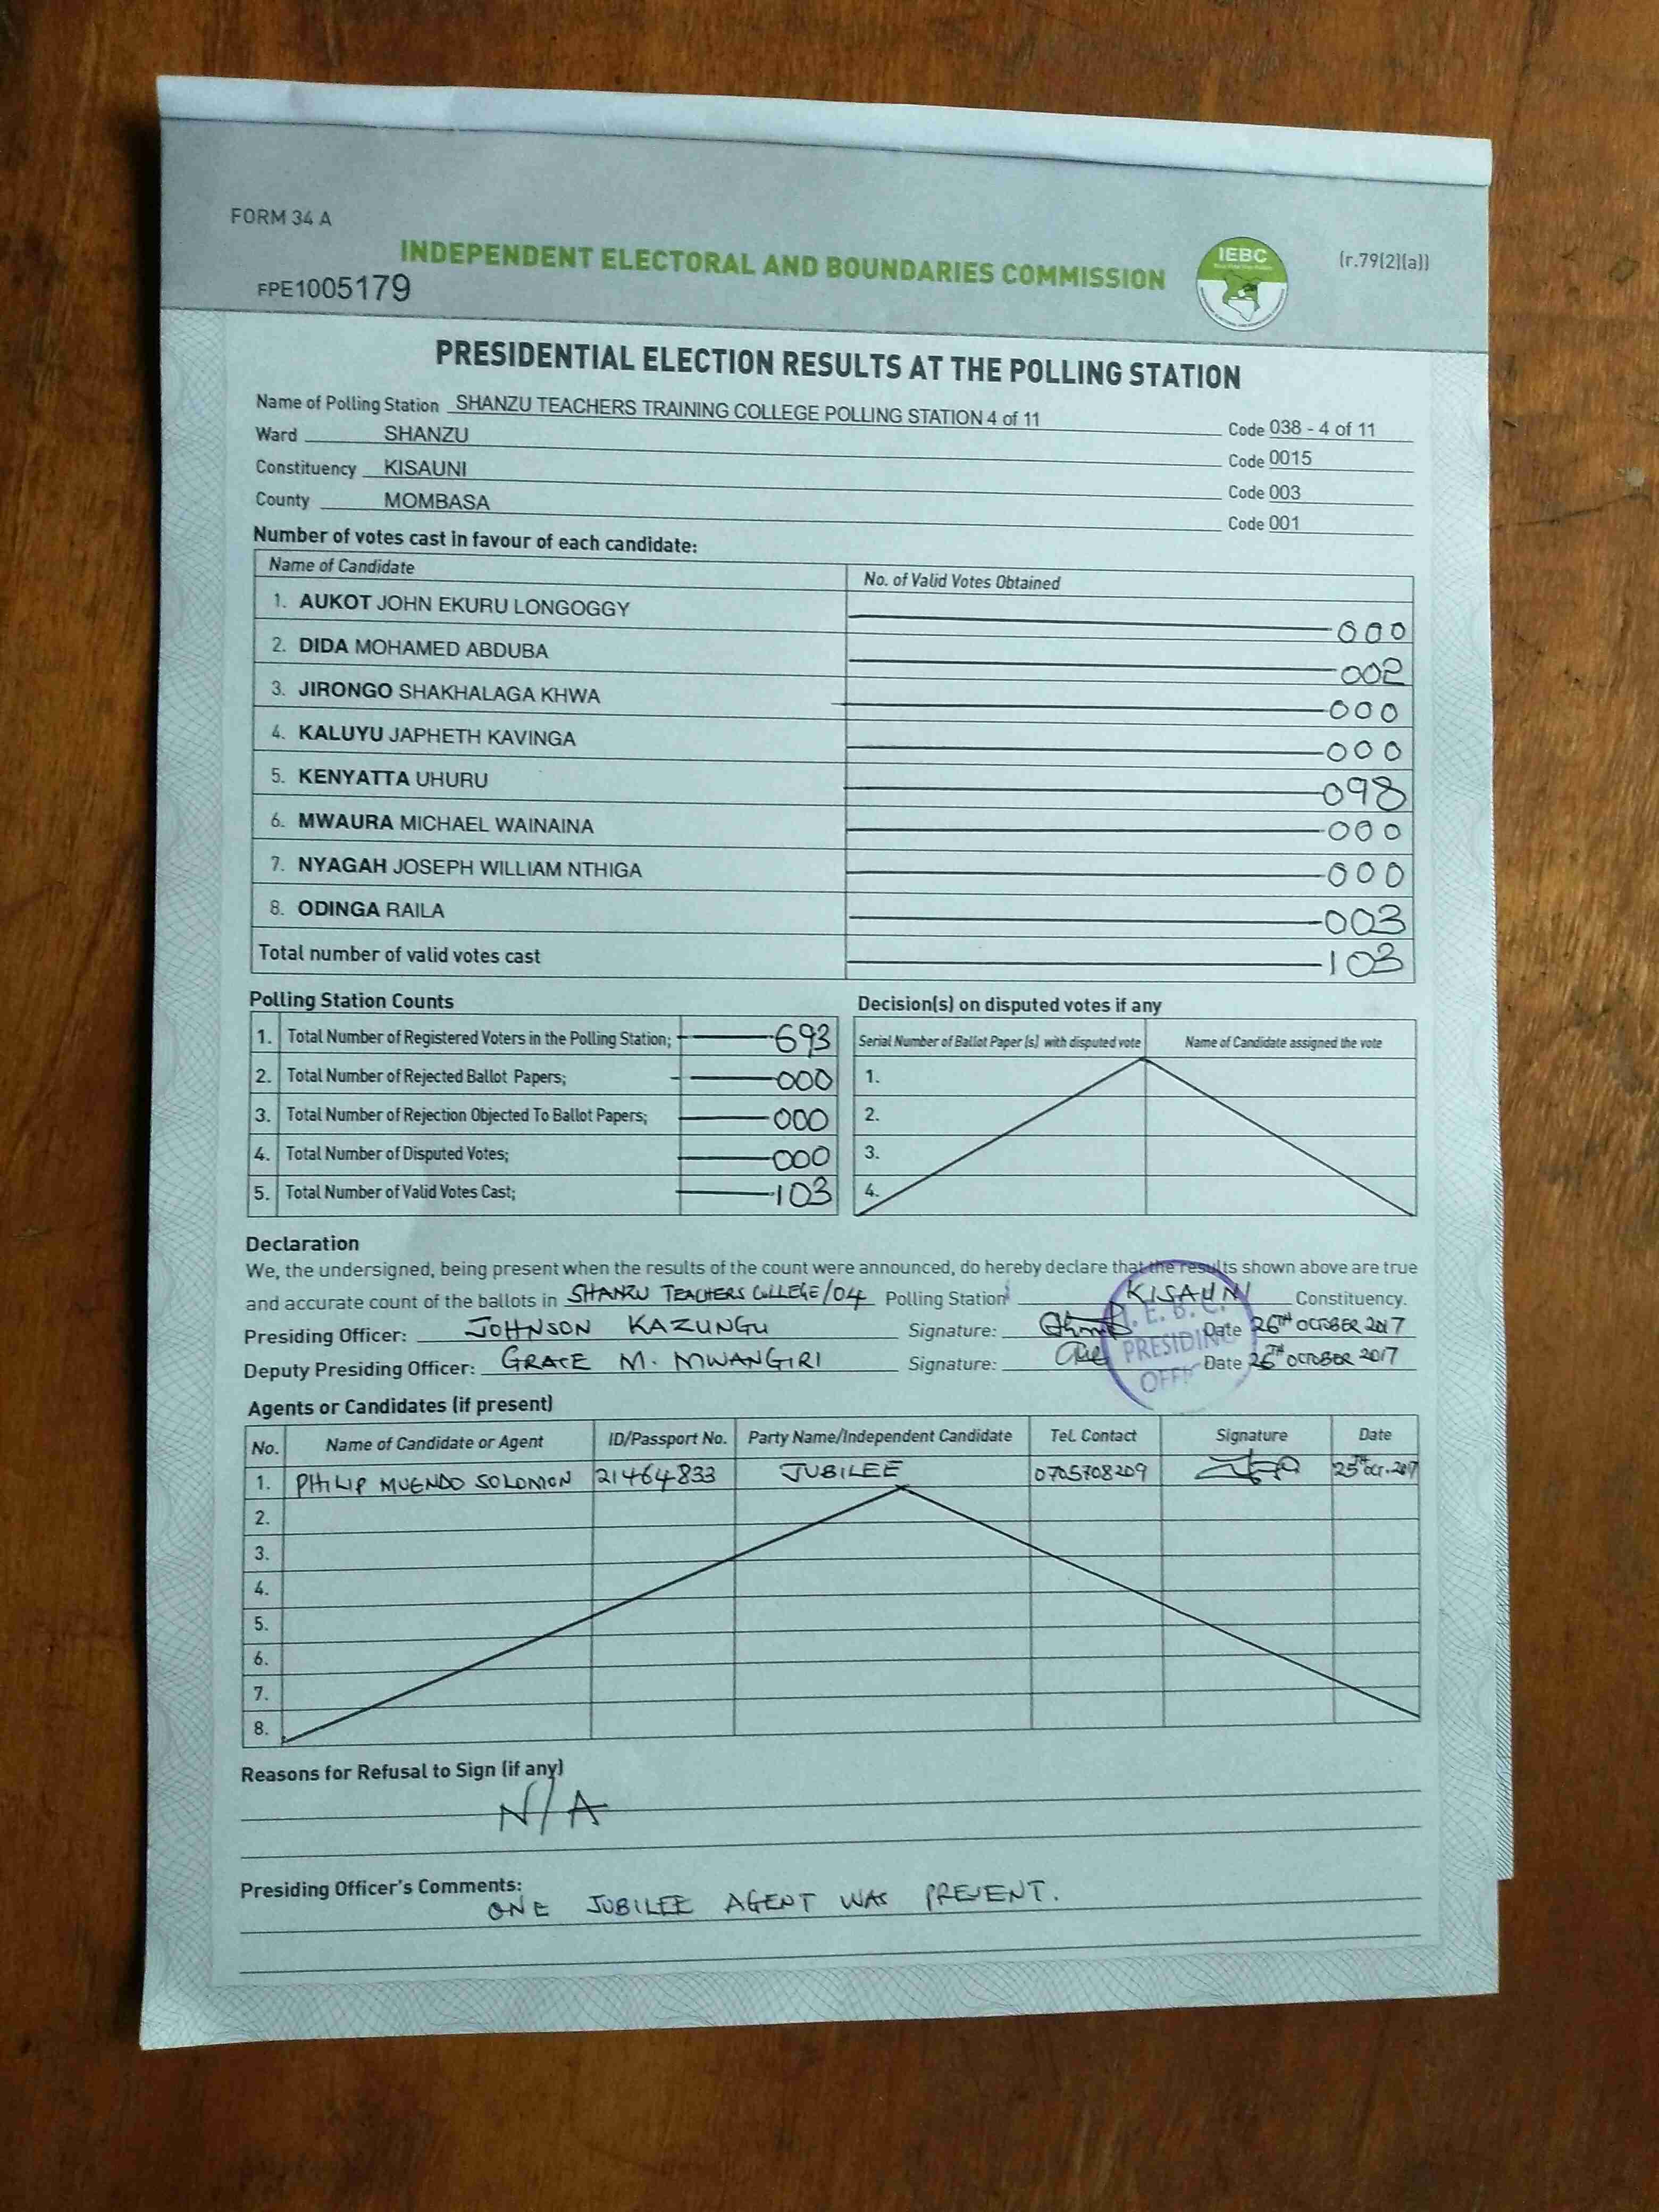 FORM 34 A
INDEPENDENT ELECTORAL AND BOUNDARIES COMMISSION
IEBC
(r.79(2)(a))
FPE1005179
PRESIDENTIAL ELECTION RESULTS AT THE POLLING STATION
Name of Polling Station SHANZU TEACHERS TRAINING COLLEGE POLLING STATION 4 of 11 Code 038 - 4 of 11
Ward SHANZU Code 0015
Constituency KISAUNI Code 003
County MOMBASA Code 001
Number of votes cast in favour of each candidate:
Name of Candidate No. of Valid Votes Obtained
1. AUKOT JOHN EKURU LONGOGGY 000
2. DIDA MOHAMED ABDUBA 002
3. JIRONGO SHAKHALAGA KHWA 000
4. KALUYU JAPHETH KAVINGA 000
5. KENYATTA UHURU 098
6. MWAURA MICHAEL WAINAINA 000
7. NYAGAH JOSEPH WILLIAM NTHIGA 000
8. ODINGA RAILA 003
Total number of valid votes cast 103
Polling Station Counts
1. Total Number of Registered Voters in the Polling Station; 693
2. Total Number of Rejected Ballot Papers; 000
3. Total Number of Rejection Objected To Ballot Papers; 000
4. Total Number of Disputed Votes; 000
5. Total Number of Valid Votes Cast; 103
Decision(s) on disputed votes if any
Serial Number of Ballot Paper (s) with disputed vote Name of Candidate assigned the vote
1.
2.
3.
4.
Declaration
We, the undersigned, being present when the results of the count were announced, do hereby declare that the results shown above are true
and accurate count of the ballots in SHANZU TEACHERS COLLEGE/04 Polling Station KISAUNI Constituency.
Presiding Officer: JOHNSON KAZUNGU Signature: Date 26TH OCTOBER 2017
Deputy Presiding Officer: GRACE M. MWANGIRI Signature: Date 26TH OCTOBER 2017
I.E.B.C.
PRESIDING
Agents or Candidates (if present)
No. Name of Candidate or Agent ID/Passport No. Party Name/Independent Candidate Tel. Contact Signature Date
1. PHILIP MUENDO SOLOMON 21464833 JUBILEE 0705708209 25TH OCT. 2017
2.
3.
4.
5.
6.
7.
8.
Reasons for Refusal to Sign (if any)
N/A
Presiding Officer's Comments:
ONE JUBILEE AGENT WAS PRESENT.